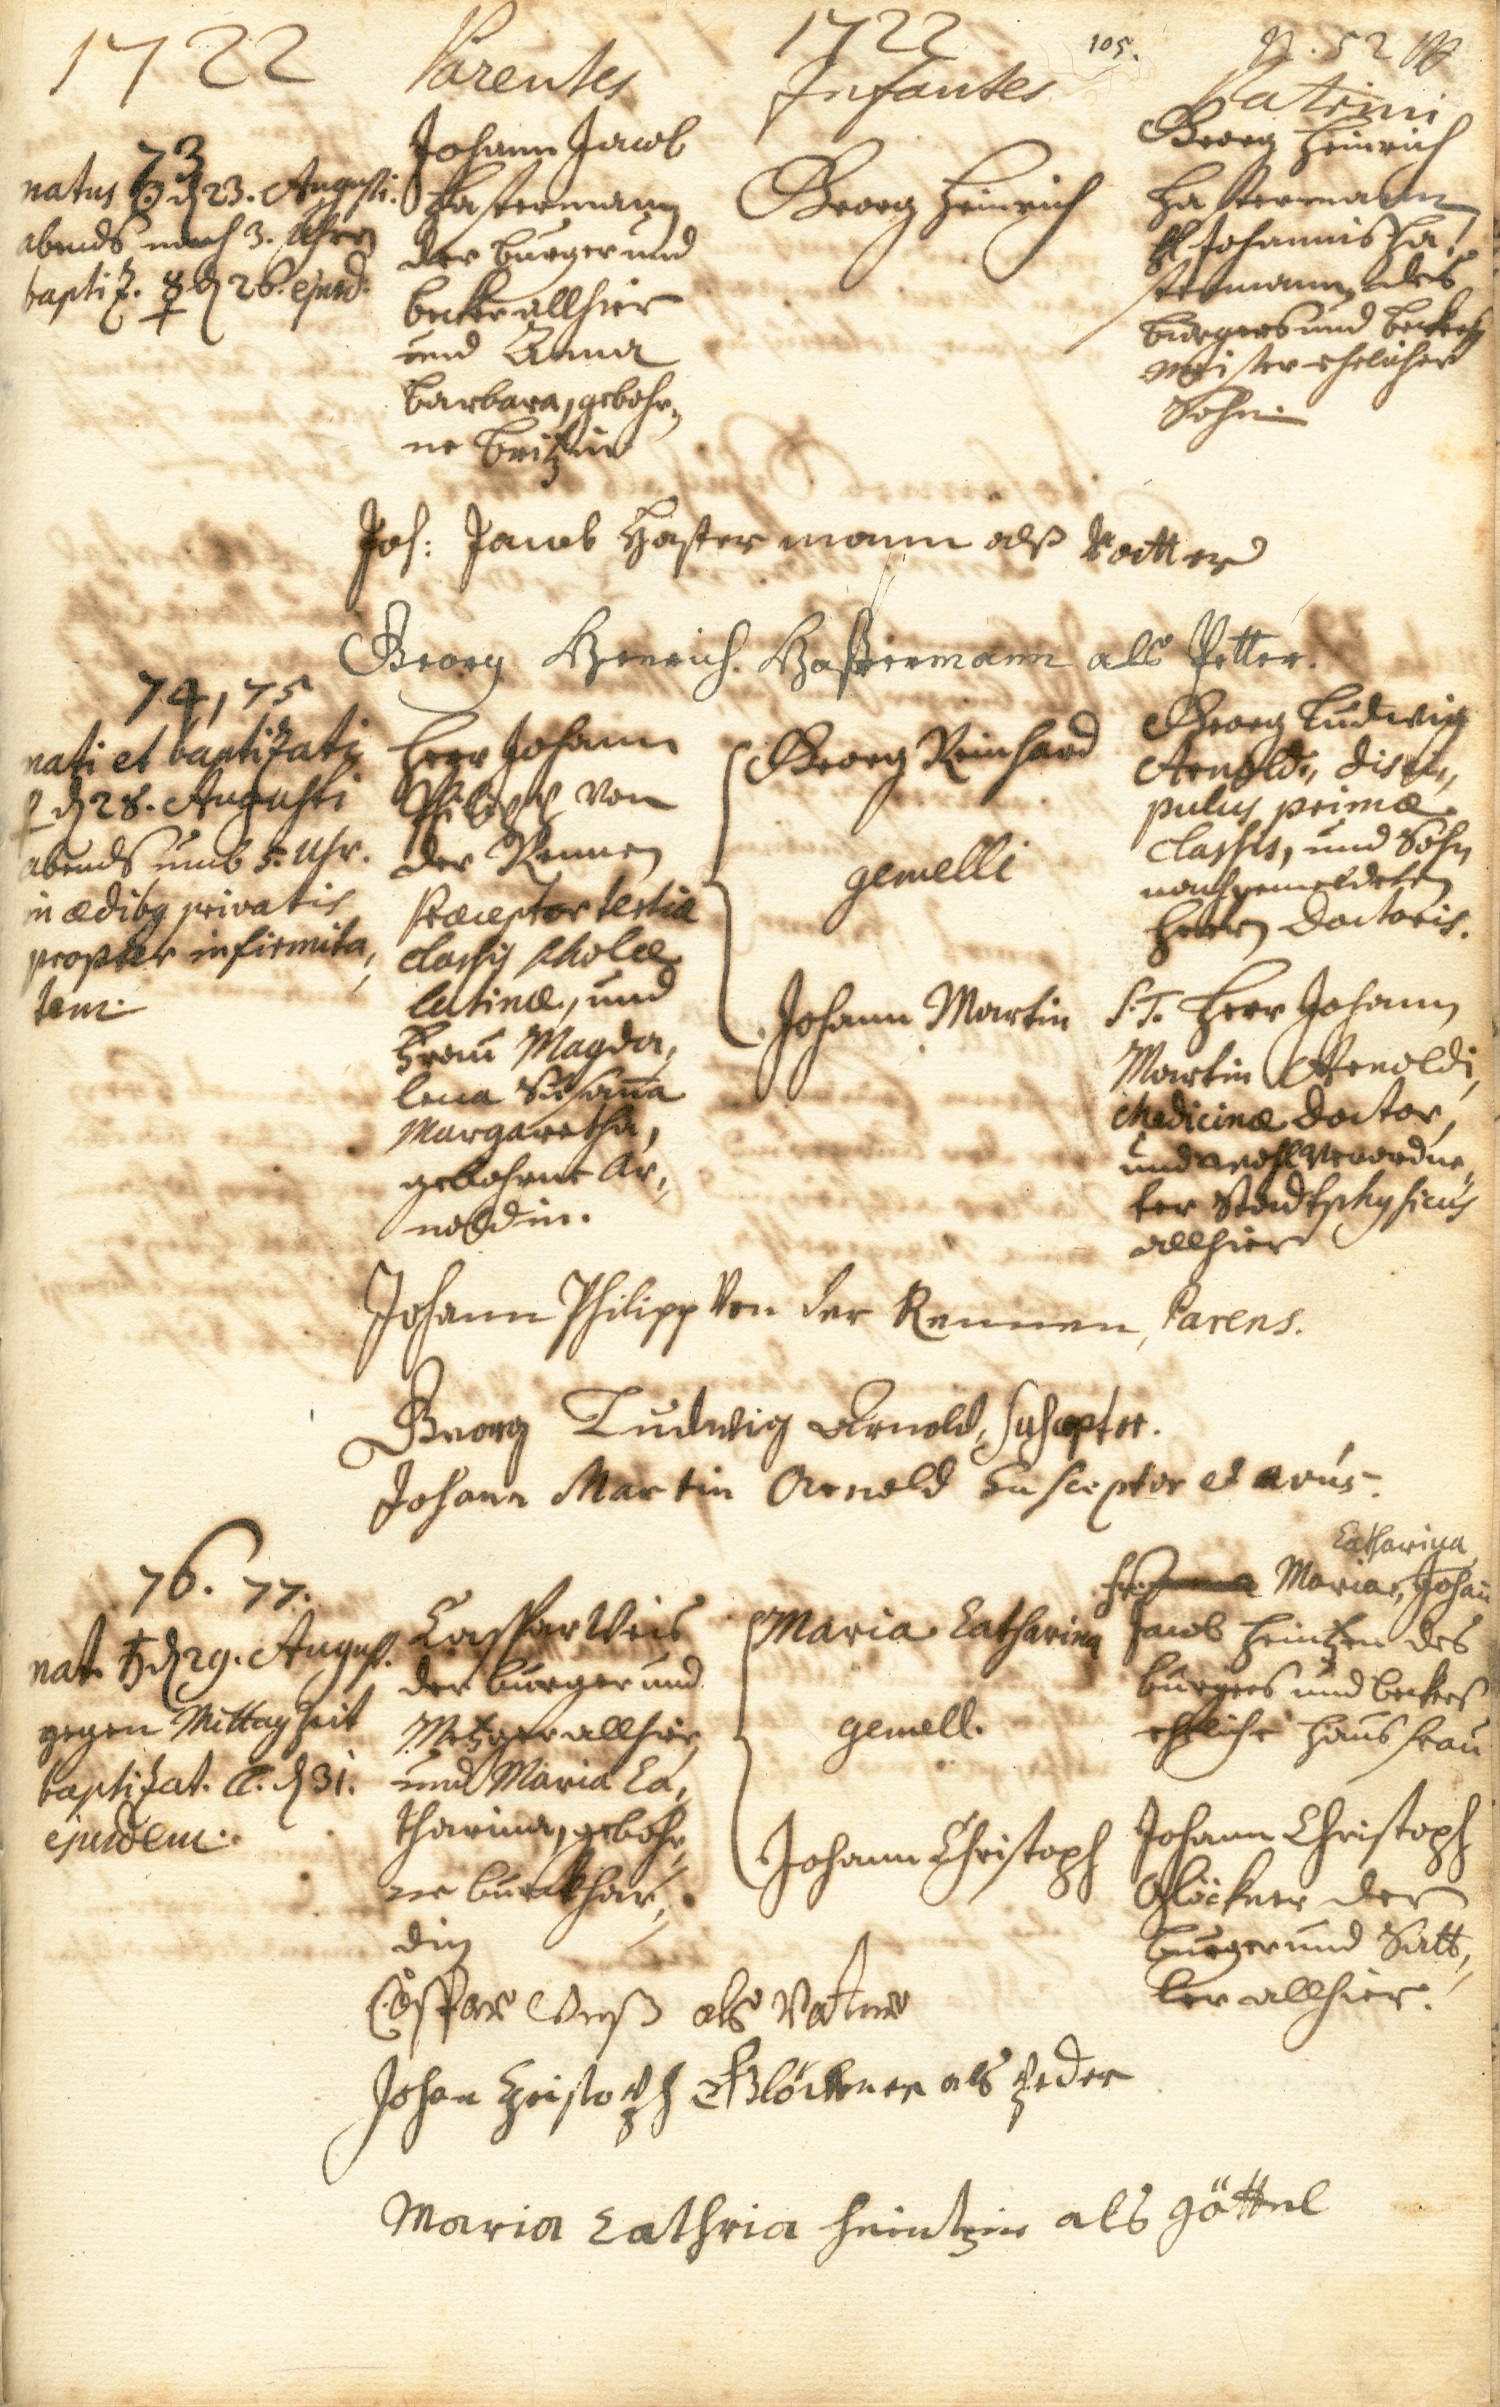 1722
Parentes
1722
Infantes
105.
Patrini
73
natus den 23. Augusti.
abends nach 3. Uhren
baptiz. den 26. ejusd.
Johann Jacob
Hastermann
der burger und
becker allhier
und Anna
Barbara, gebohr„
ne Britzin
Georg Heinrich
Georg Heinrich
Hastermann
Johannis Ha„
stermann, des
burgers und becker
meister ehelicher
Sohn.
Joh: Jacob Hastermann alß Vatter
Georg Henrich. Hastermann als Petter.
74, 75
nati et baptizati
♀ den 28. Augusti
abends umb 5. Uhr.
in ædibq privatis
propter infirmita„
tem.
Herr Johann
Philipp von
der Rennen
Præceptor tertiæ
classis scholæ
latinæ, und
Frau Magda„
lena Susaña
Margaretha,
gebohrne Ar„
noldin.
Georg Reinhard
gemelli
Johann Martin
Georg Ludwig
Arnoldi, disci„
pulus primæ
classis, und Sohn
nachgemeldeten
Herrn Doctoris.
S. T. Herr Johann
Martin Arnoldi,
Medicinæ Doctor,
und wohl Verordne„
ter Stadtphysicus
allhier
Johann Philipp Von der Rennen, Parens.
Georg Ludwig Arnold, Susceptor.
Johann Martin Arnold Susceptor et avus.
76. 77.
nat. ♄ den 29. August.
gegen Mittagzeit
baptizat. den 31.
ejusdem.
Casspar Weis
der burger und
Metzger allhier,
und Maria Ca„
tharina, gebohr„
ne burckhar„
din
Maria Catharina
gemell.
Johann Christoph
Catharina
Fr. Maria, Johañ
Jacob Heintzen des
burgers und beckers
eheliche Hausfrau
Johann Christoph
Glöckner der
burger und Satt„
ler allhier.
Casspar Weyß als Vatter
Johan Christoph Glöckner als Peder
Maria Cathria Heintzin als göttel